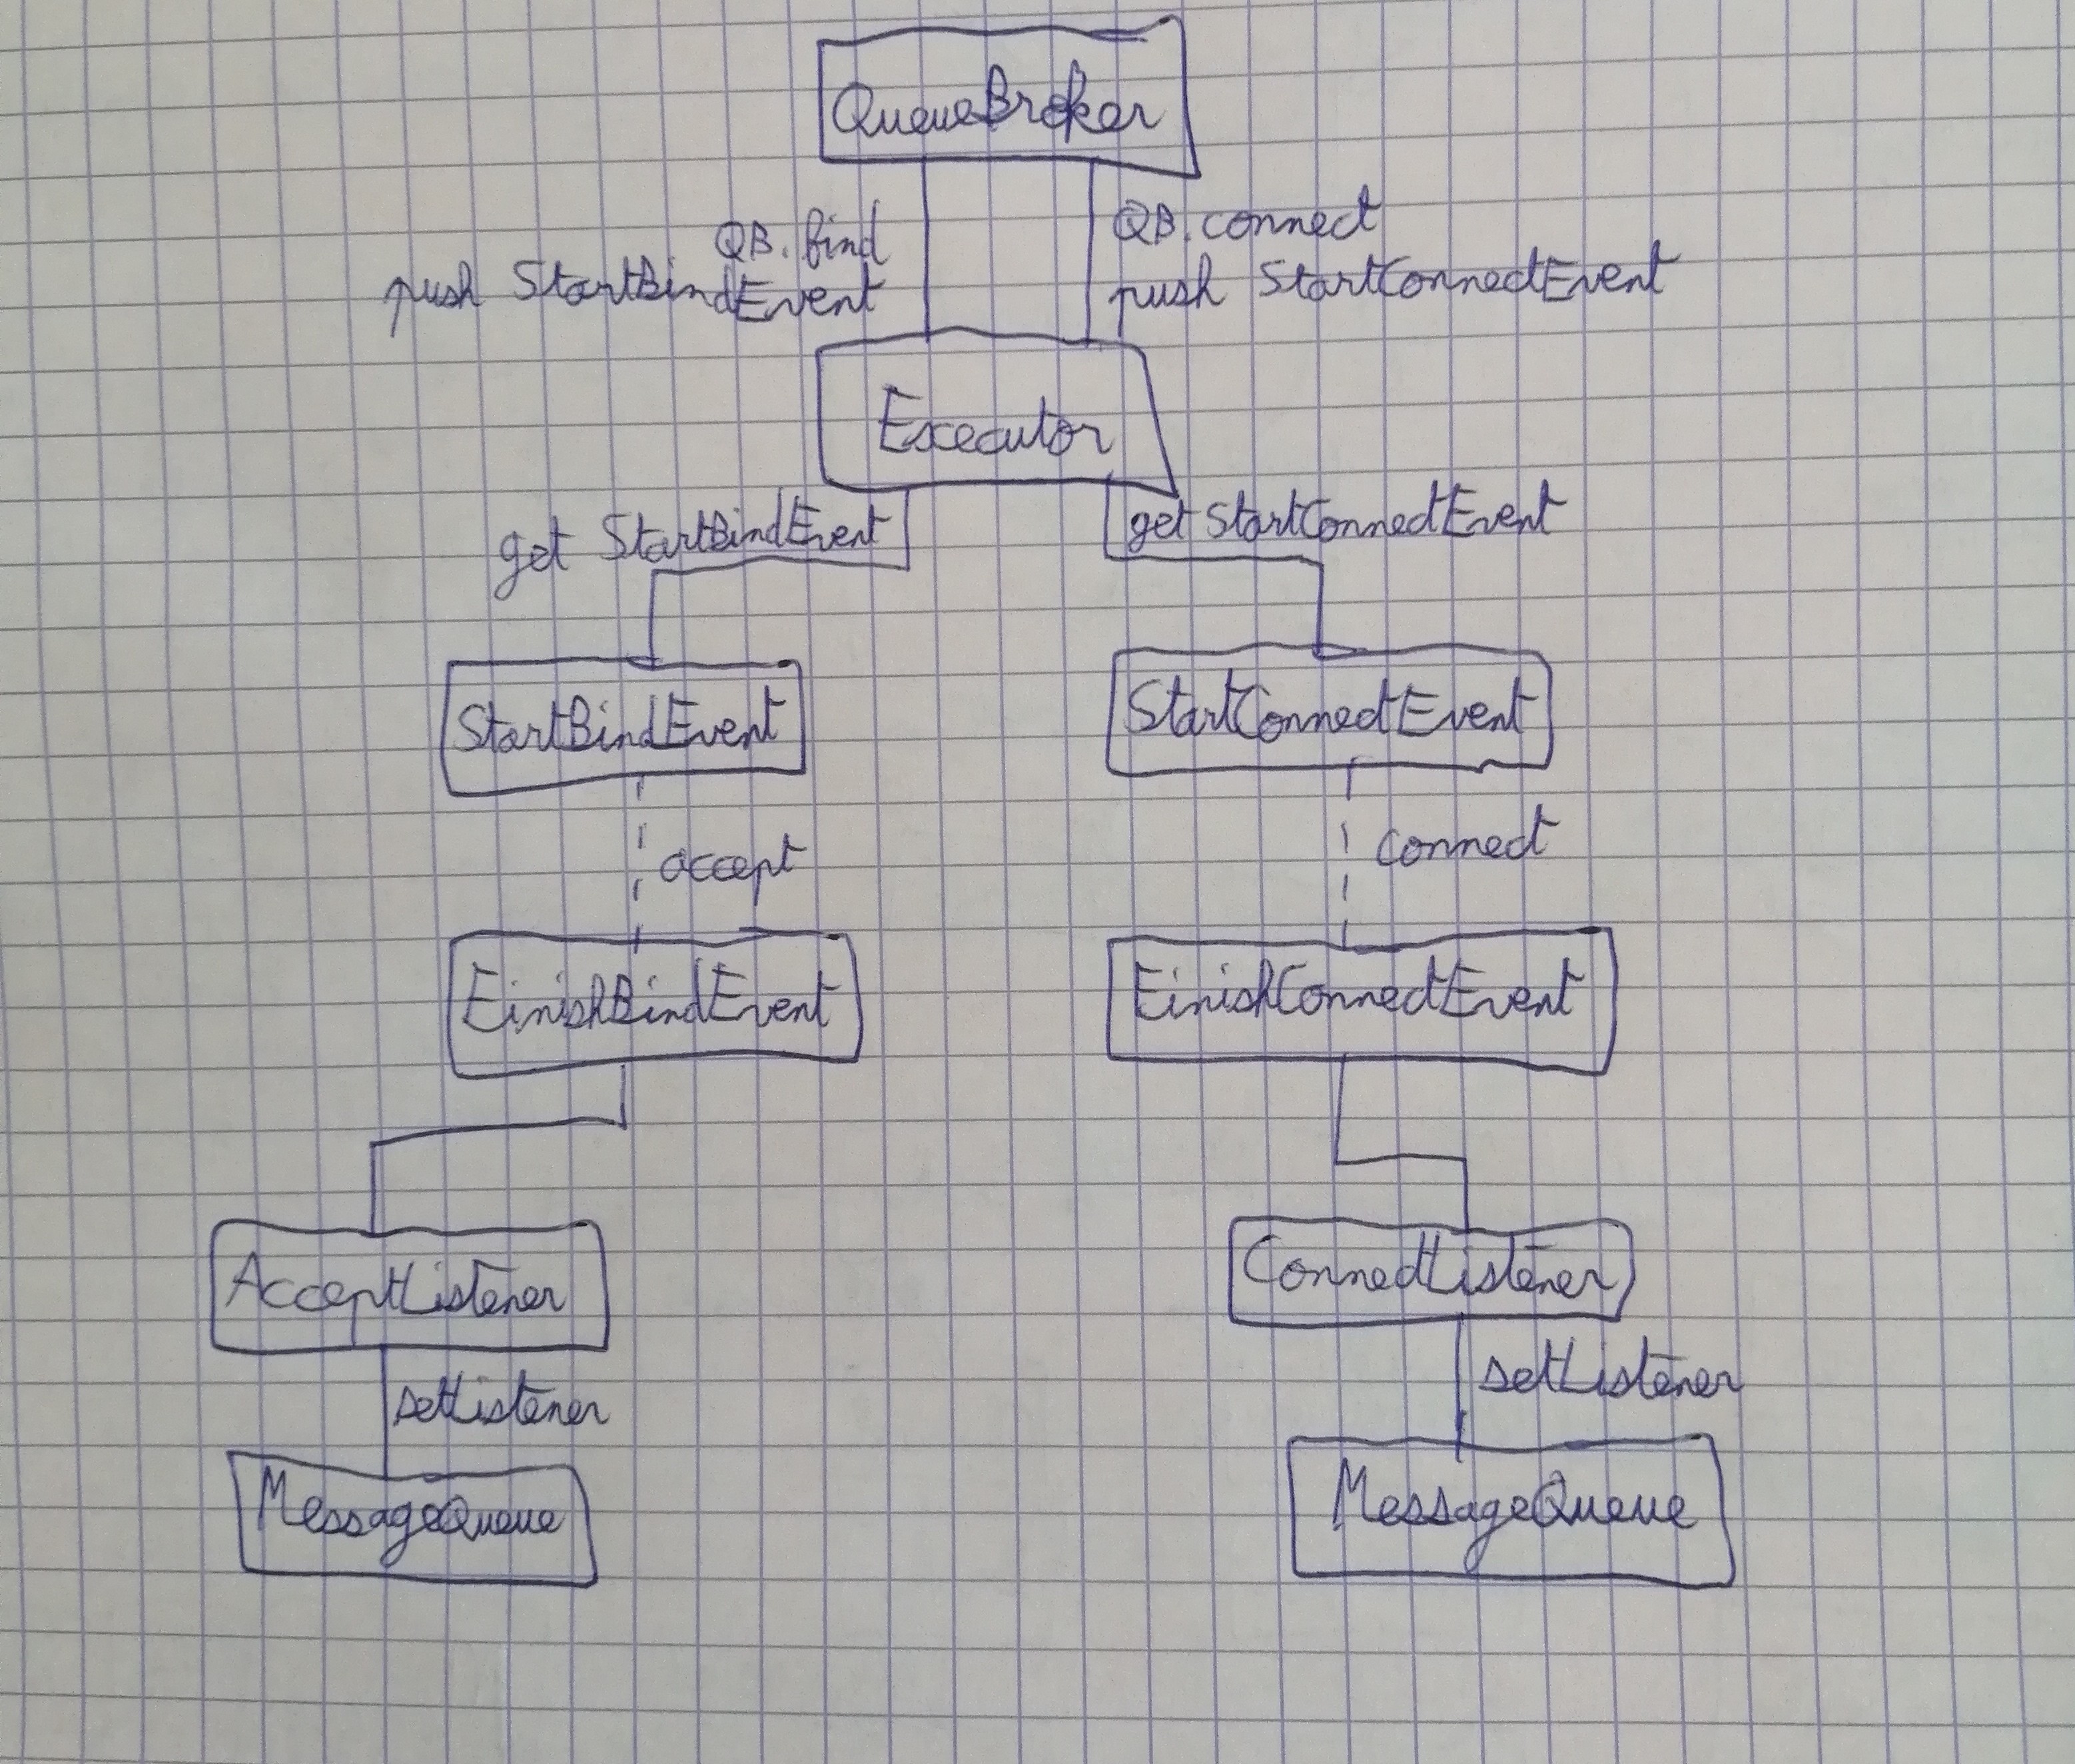 QueueBroker
QB.bind
push StartBindEvent
QB.connect
push StartConnectEvent
Executor
get StartBindEvent
get StartConnectEvent
StartBindEvent
StartConnectEvent
accept
connect
FinishBindEvent
FinishConnectEvent
AcceptListener
ConnectListener
setListener
setListener
MessageQueue
MessageQueue